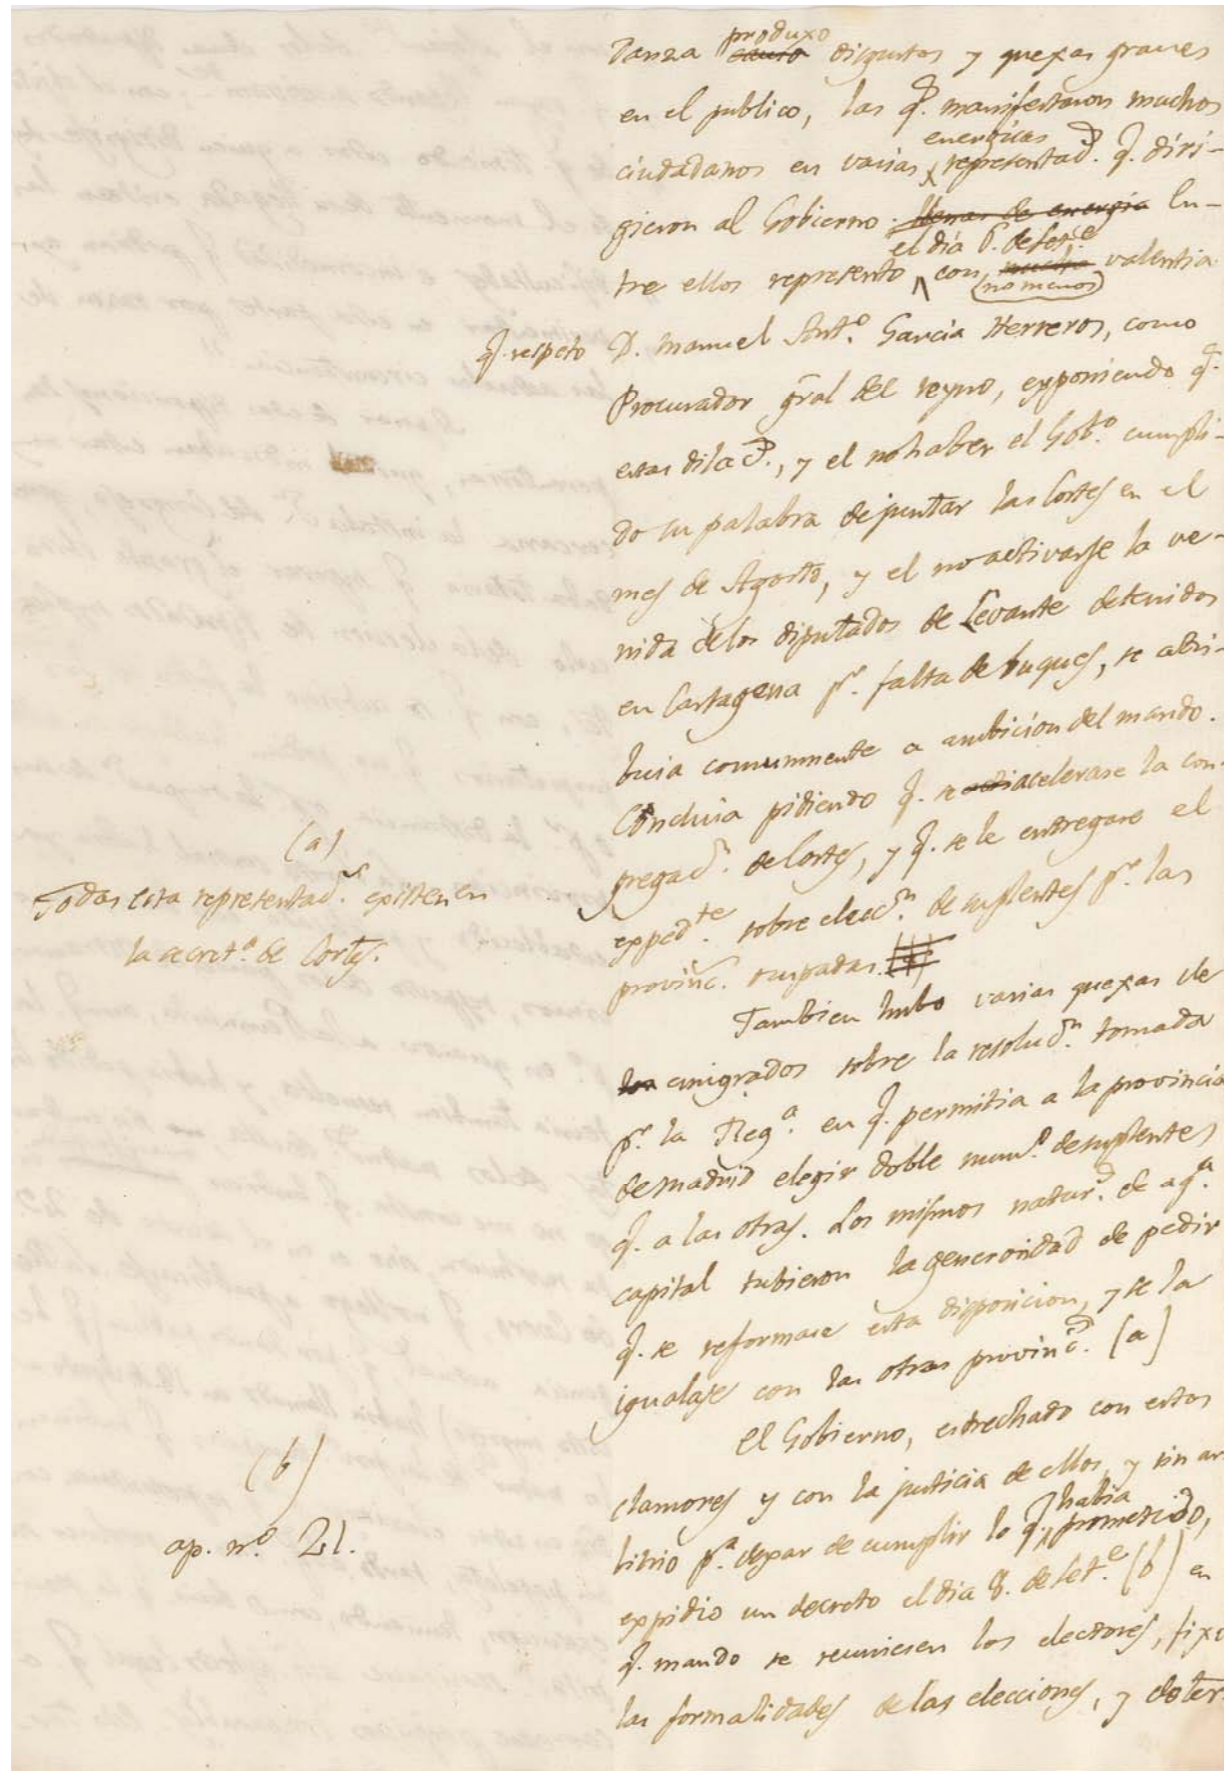 produxo
danza causó disgustos y quexas graves
en el publico, las q.e manifestaron muchos
energicas
ciudadanos en varias representac.s q. diri-
gieron al Gobierno. llenas de energia En-
el dia 6. de Set.e
tre ellos representó con mucha valentia
(no menos)
q. respeto D. Manuel Ant.o Garcia Herreros, como
Procurador gral del reyno, exponiendo q.e
estas dilac.s, y el no haber el Gob.o cumpli-
do su palabra de juntar las Cortes en el
mes de Agosto, y el no activarse la ve-
nida de los diputados de Levante detenidos
en Cartagena p.r falta de buques, se atri-
buia comunmente a ambicion del mando.
Concluia pidiendo q. se acelerase la con-
gregac.n de Cortes, y q. se le entregase el
exped.te sobre elecc.n de suplentes p.r las
provinc. ocupadas.
Tambien hubo varias quexas de
los emigrados sobre la resoluc.n tomada
p.r la Reg.a en q. permitia a la provincia
de Madrid elegir doble num.o de suplentes
q. a las otras. Los mismos natur.s de aq.a
capital tubieron la generosidad de pedir
q. se reformase esta disposicion, y se la
igualase con las otras provinc.s (a)
El Gobierno, estrechado con estos
clamores y con la justicia de ellos, y sin ar-
habia
bitrio p.a dexar de cumplir lo q. prometido,
expidio un decreto el dia 8. de Set.e (b) en
q. mando se reuniesen los electores, fixó
las formalidades de las elecciones, y deter-
(a)
Todas esta representac.s existen en
la secret.a de Cortes.
(b)
ap. n.o 21.